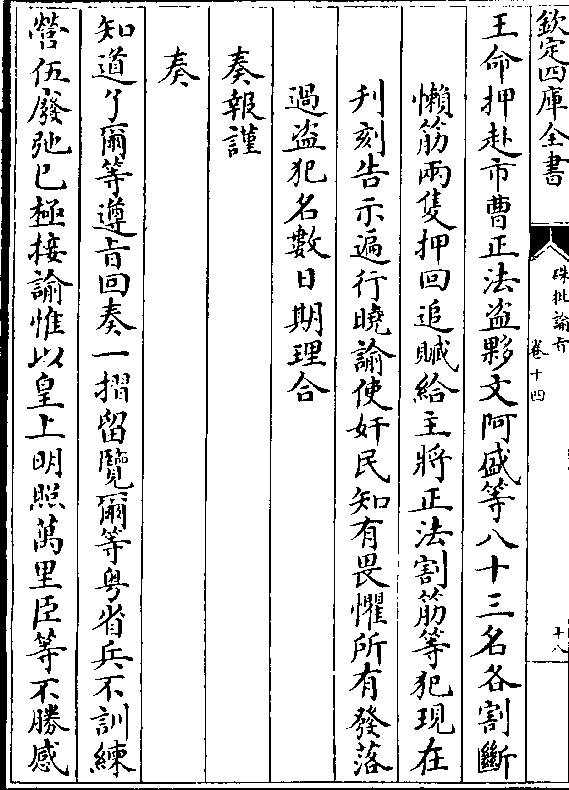 欽定四庫全書
硃批諭旨
卷十四
十八
王命押赴市曹正法盜夥文阿盛等八十三名各割斷
懶筋兩隻押回追贜給主將正法割筋等犯現在
刋刻告示遍行曉諭使奸民知有畏懼所有發落
過盜犯名數日期理合
奏報謹
奏
知道了爾等遵旨回奏一摺留覽爾等粤省兵不訓練
營伍廢弛已極接諭惟以皇上明照萬里臣等不勝感